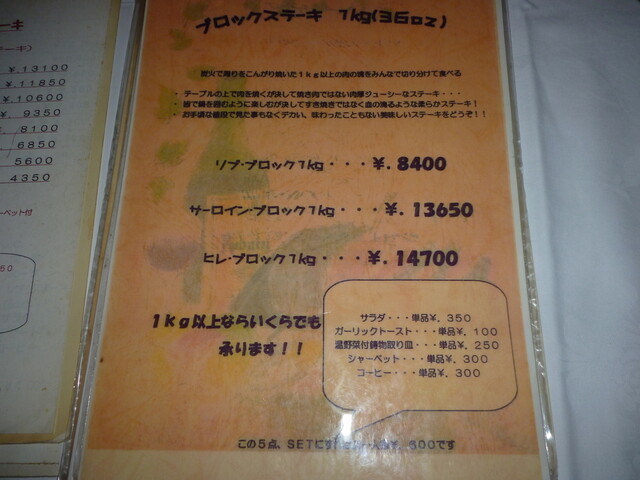 ーキ
ーキ）
¥.13100
¥.11850
¥.10600
¥. 9350
8100
6850
5600
4350
ーベット付
50
ブロックステーキ 1kg(36oz)
炭火で周りをこんがり焼いた1kg以上の肉の塊をみんなで切り分けて食べる
・ テーブルの上で肉を焼くが決して焼き肉ではない肉厚ジューシーなステーキ・・・
・ 皆で鍋を囲むように楽しむが決してすき焼きではなく血の滴るような柔らかステーキ！
・ お手頃な値段で見た事もなくデカい、味わったこともない美味しいステーキをどうぞ！！
リブ・ブロック1kg・・・¥. 8400
サーロイン・ブロック1kg・・・¥. 13650
ヒレ・ブロック1kg・・・¥. 14700
1kg以上ならいくらでも
承ります！！
サラダ・・・単品¥. 350
ガーリックトースト・・・単品¥. 100
温野菜付鋳物取り皿・・・単品¥. 250
シャーベット・・・単品¥. 300
コーヒー・・・単品¥. 300
この5点、SETにす 一人 ¥. 800です